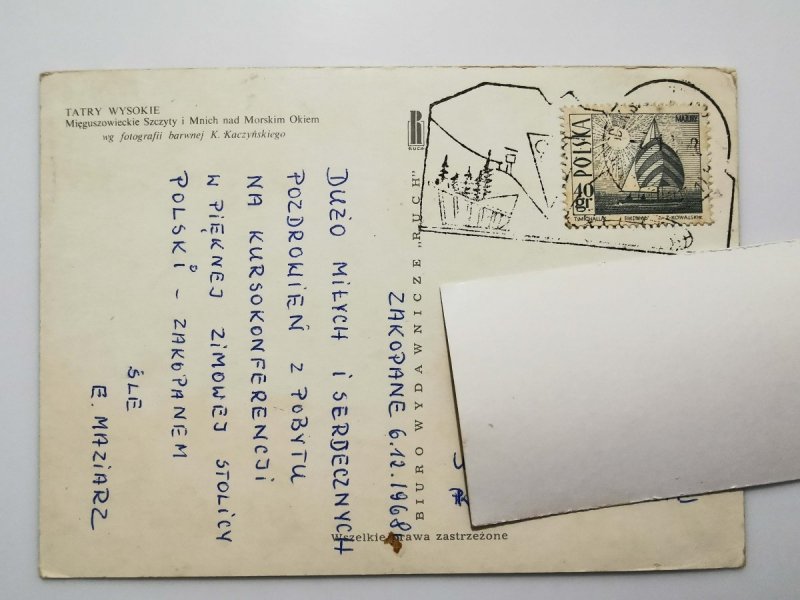 TATRY WYSOKIE
Mięguszowieckie Szczyty i Mnich nad Morskim Okiem
wg fotografii barwnej K. Kaczyńskiego
RUCH
BIURO WYDAWNICZE „RUCH"
Wszelkie prawa zastrzeżone
MAZURY
POLSKA
40 gr
T.MICHALUK
Z.KOWALSKI
ZAKOPANE 6.12.1968
DUŻO MIŁYCH I SERDECZNYCH
POZDROWIEŃ Z POBYTU
NA KURSOKONFERENCJI
W PIĘKNEJ ZIMOWEJ STOLICY
POLSKI - ZAKOPANEM
ŚLE
E. MAZIARZ